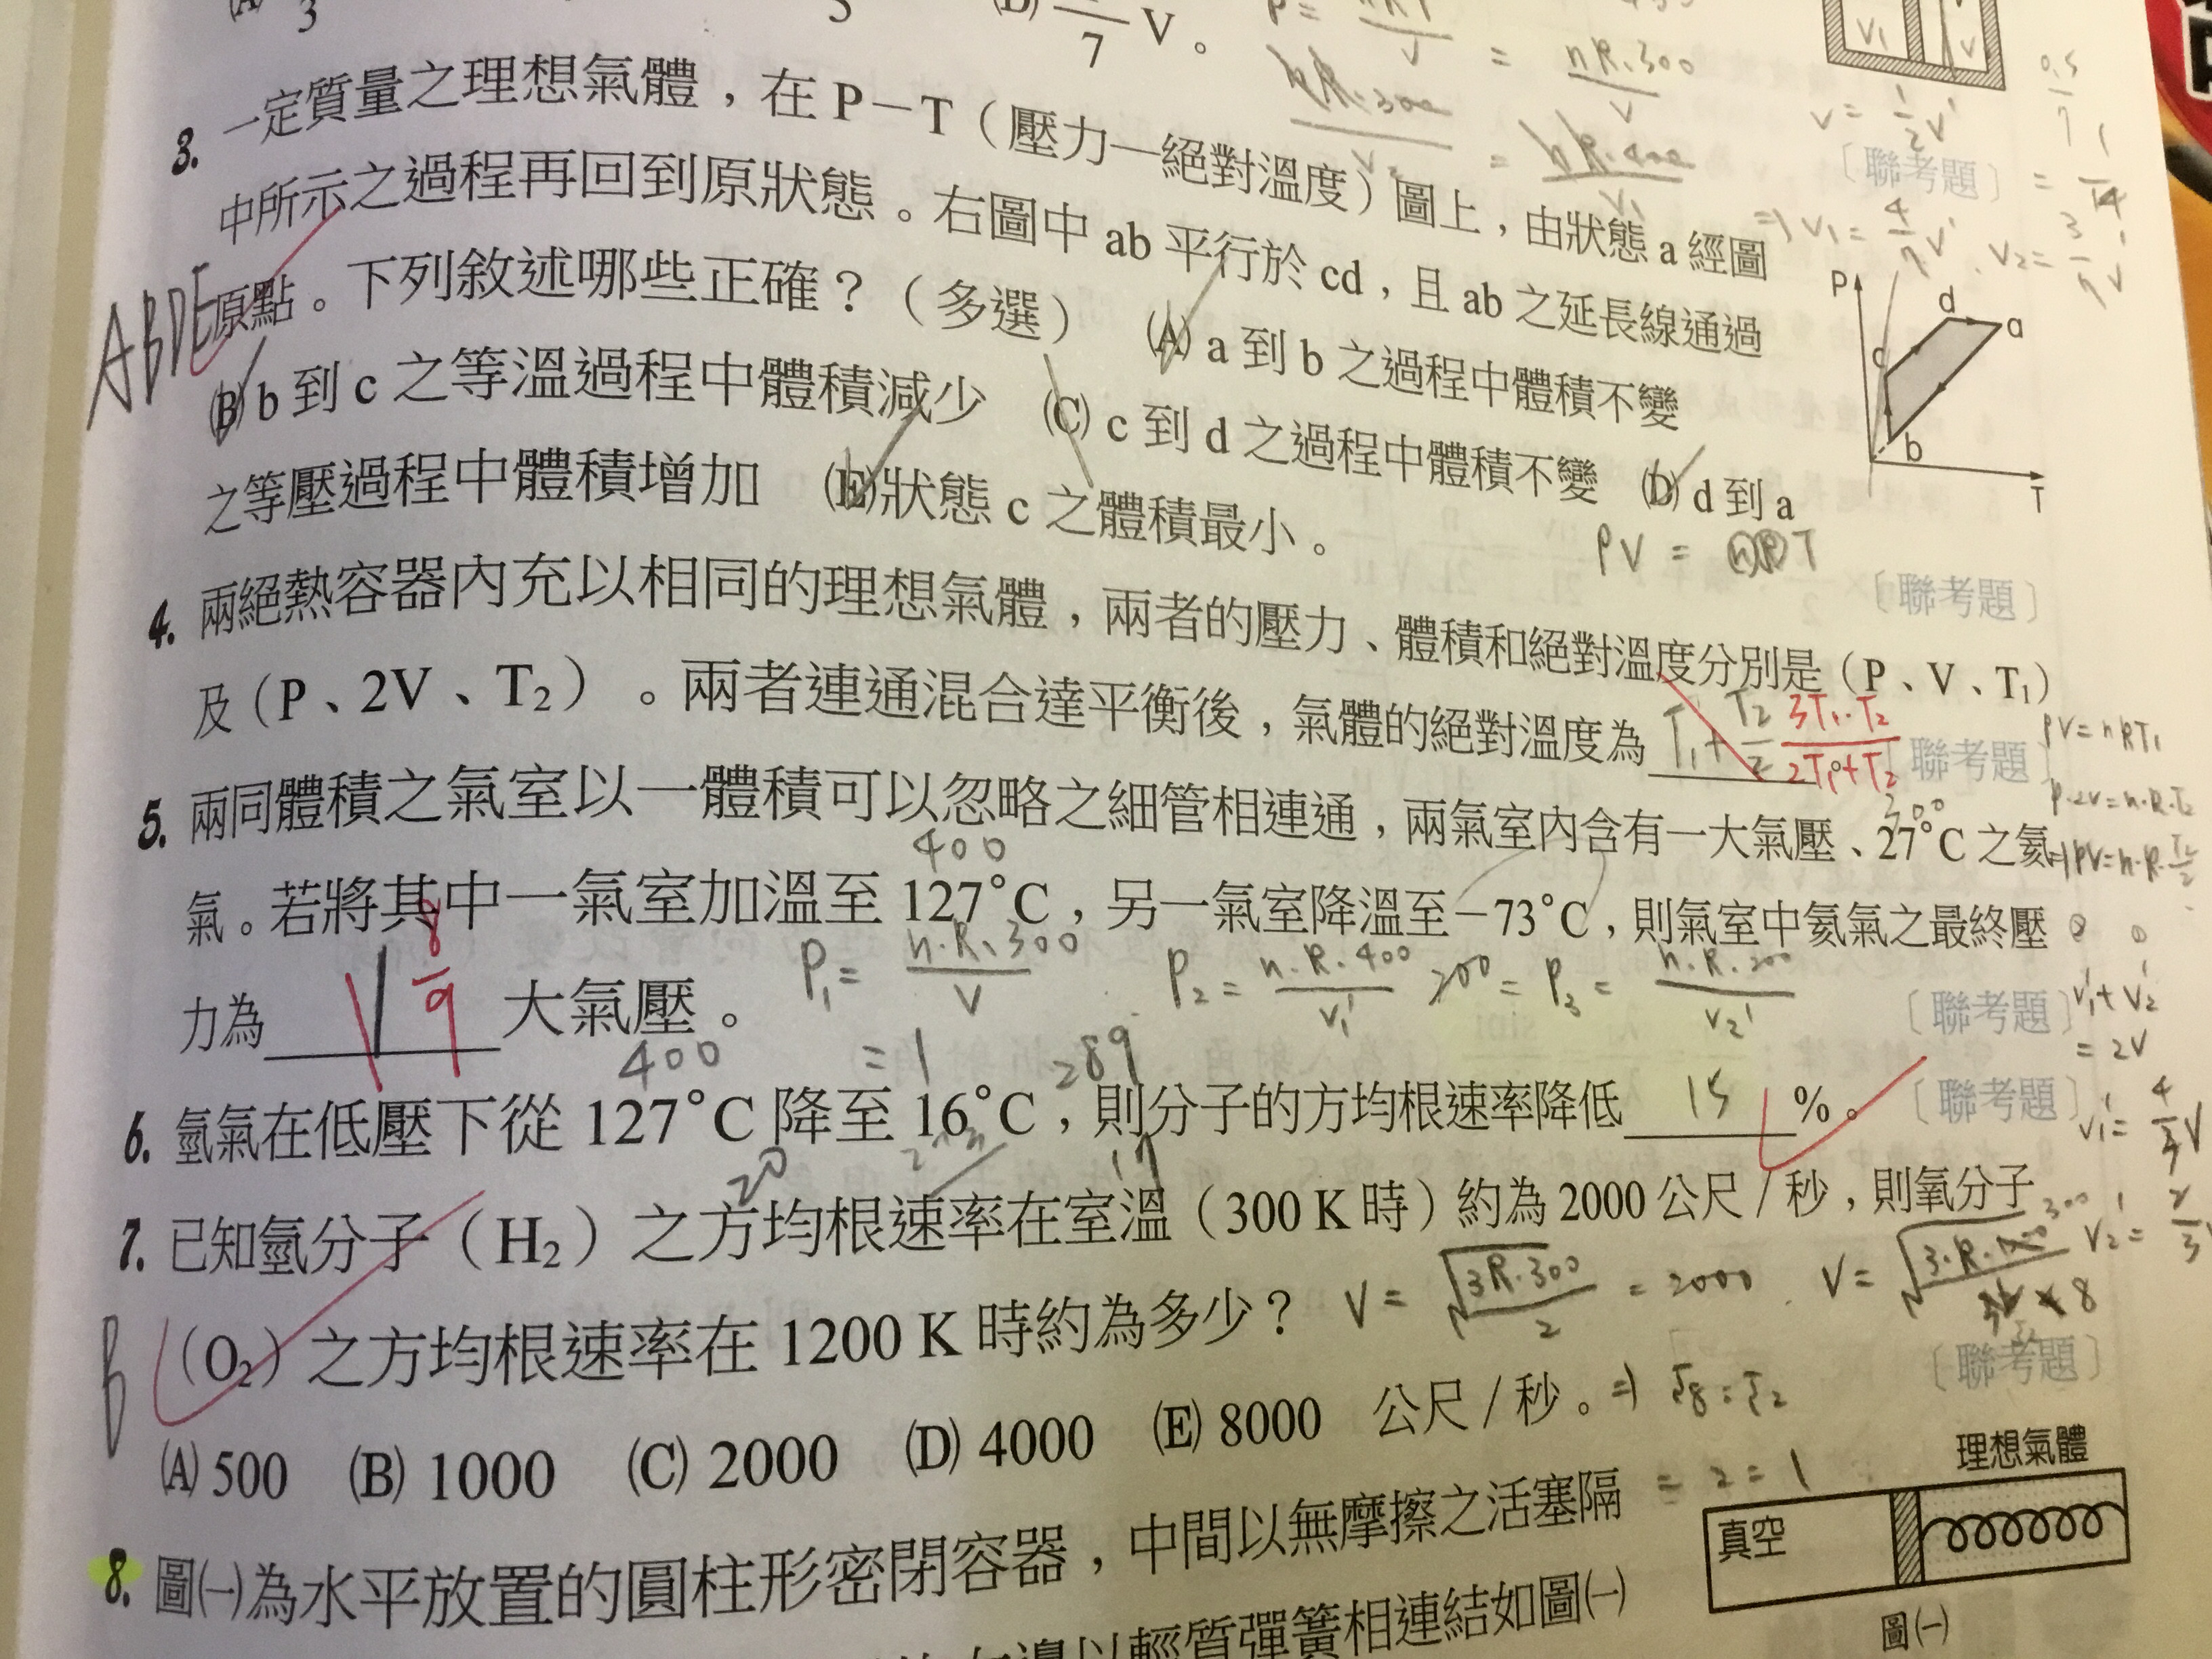 (A) 3 5 (D) 7 V。
P = nRT / V = nR·300 / V
V1 V
nR·300 / V2 = nR·400 / V1
V = 1/2 V'
〔聯考題〕
⇒ V1 = 4/7 V', V2 = 3/7 V'
3. 一定質量之理想氣體，在 P－T（壓力—絕對溫度）圖上，由狀態 a 經圖
中所示之過程再回到原狀態。右圖中 ab 平行於 cd，且 ab 之延長線通過
原點。下列敘述哪些正確？（多選） (A) a 到 b 之過程中體積不變
(B) b 到 c 之等溫過程中體積減少 (C) c 到 d 之過程中體積不變 (D) d 到 a
之等壓過程中體積增加 (E)狀態 c 之體積最小。
ABDE
P d a c b T
PV = nRT
〔聯考題〕
4. 兩絕熱容器內充以相同的理想氣體，兩者的壓力、體積和絕對溫度分別是（P、V、T1）
及（P、2V、T2）。兩者連通混合達平衡後，氣體的絕對溫度為 T1 + T2 / 2 3T1·T2 / 2T1+T2 。〔聯考題〕
PV = nRT1
P·2V = n·R·T2
⇒ PV = n·R·T2/2
5. 兩同體積之氣室以一體積可以忽略之細管相連通，兩氣室內含有一大氣壓、27°C 之氦
300
400
氣。若將其中一氣室加溫至 127°C，另一氣室降溫至－73°C，則氣室中氦氣之最終壓
力為 1 8/9 大氣壓。
P1 = n·R·300 / V = 1
P2 = n·R·400 / V1' 200 = P3 = n·R·200 / V2'
〔聯考題〕
V1' + V2' = 2V
V1' = 4/3 V
V2' = 2/3
400 289
6. 氫氣在低壓下從 127°C 降至 16°C，則分子的方均根速率降低 15 %。〔聯考題〕
20 17
7. 已知氫分子（H2）之方均根速率在室溫（300 K 時）約為 2000 公尺 / 秒，則氧分子
（O2）之方均根速率在 1200 K 時約為多少？
B
V = √3R·300 / 2 = 2000
300
8
〔聯考題〕
(A) 500 (B) 1000 (C) 2000 (D) 4000 (E) 8000 公尺 / 秒。
⇒ √8 : √2
= 2 : 1
8. 圖(一)為水平放置的圓柱形密閉容器，中間以無摩擦之活塞隔
右邊以輕質彈簧相連結如圖(一)
理想氣體
真空
圖(一)